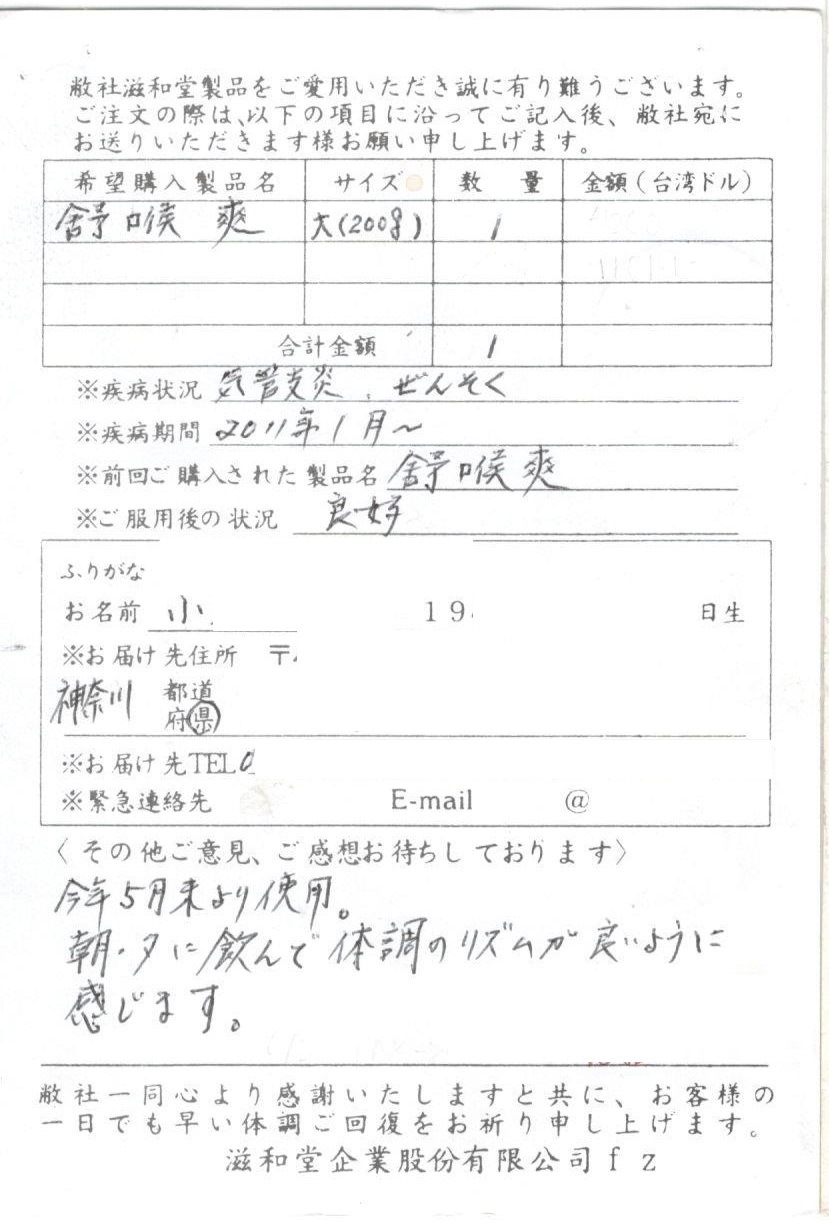 敝社滋和堂製品をご愛用いただき誠に有り難うございます。
ご注文の際は、以下の項目に沿ってご記入後、敝社宛に
お送りいただきます様お願い申し上げます。
希望購入製品名 サイズ 数量 金額(台湾ドル)
舒喉爽 大(200g) 1
合計金額 1
※疾病状況 気管支炎、ぜんそく
※疾病期間 2011年1月~
※前回ご購入された製品名 舒喉爽
※ご服用後の状況 良好
ふりがな
お名前 小 19 日生
※お届け先住所 〒
神奈川 都道
府県
※お届け先TEL0
※緊急連絡先 E-mail @
〈その他ご意見、ご感想お待ちしております〉
今年5月末より使用。
朝・夕に飲んで体調のリズムが良いように
感じます。
敝社一同心より感謝いたしますと共に、お客様の
一日でも早い体調ご回復をお祈り申し上げます。
滋和堂企業股份有限公司fz